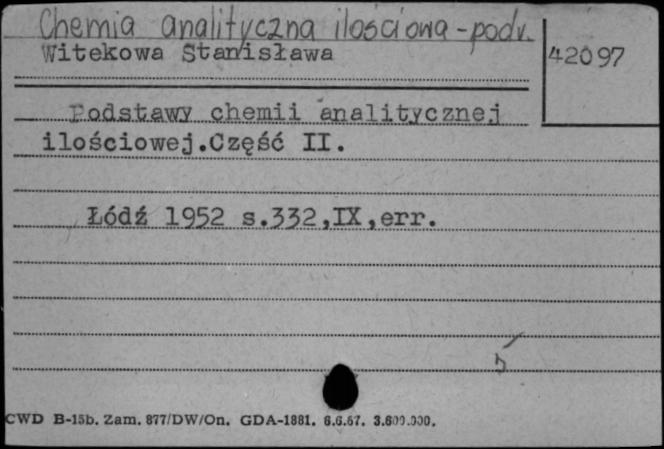 Chemia analityczna ilościowa - podr.
Witekowa Stanisława
42097
Podstawy chemii analitycznej
ilościowej.Część II.
Łódź 1952 s.332,IX,err.
CWD B-15b. Zam. 877/DW/On. GDA-1881. 6.6.67. 3.600.000.